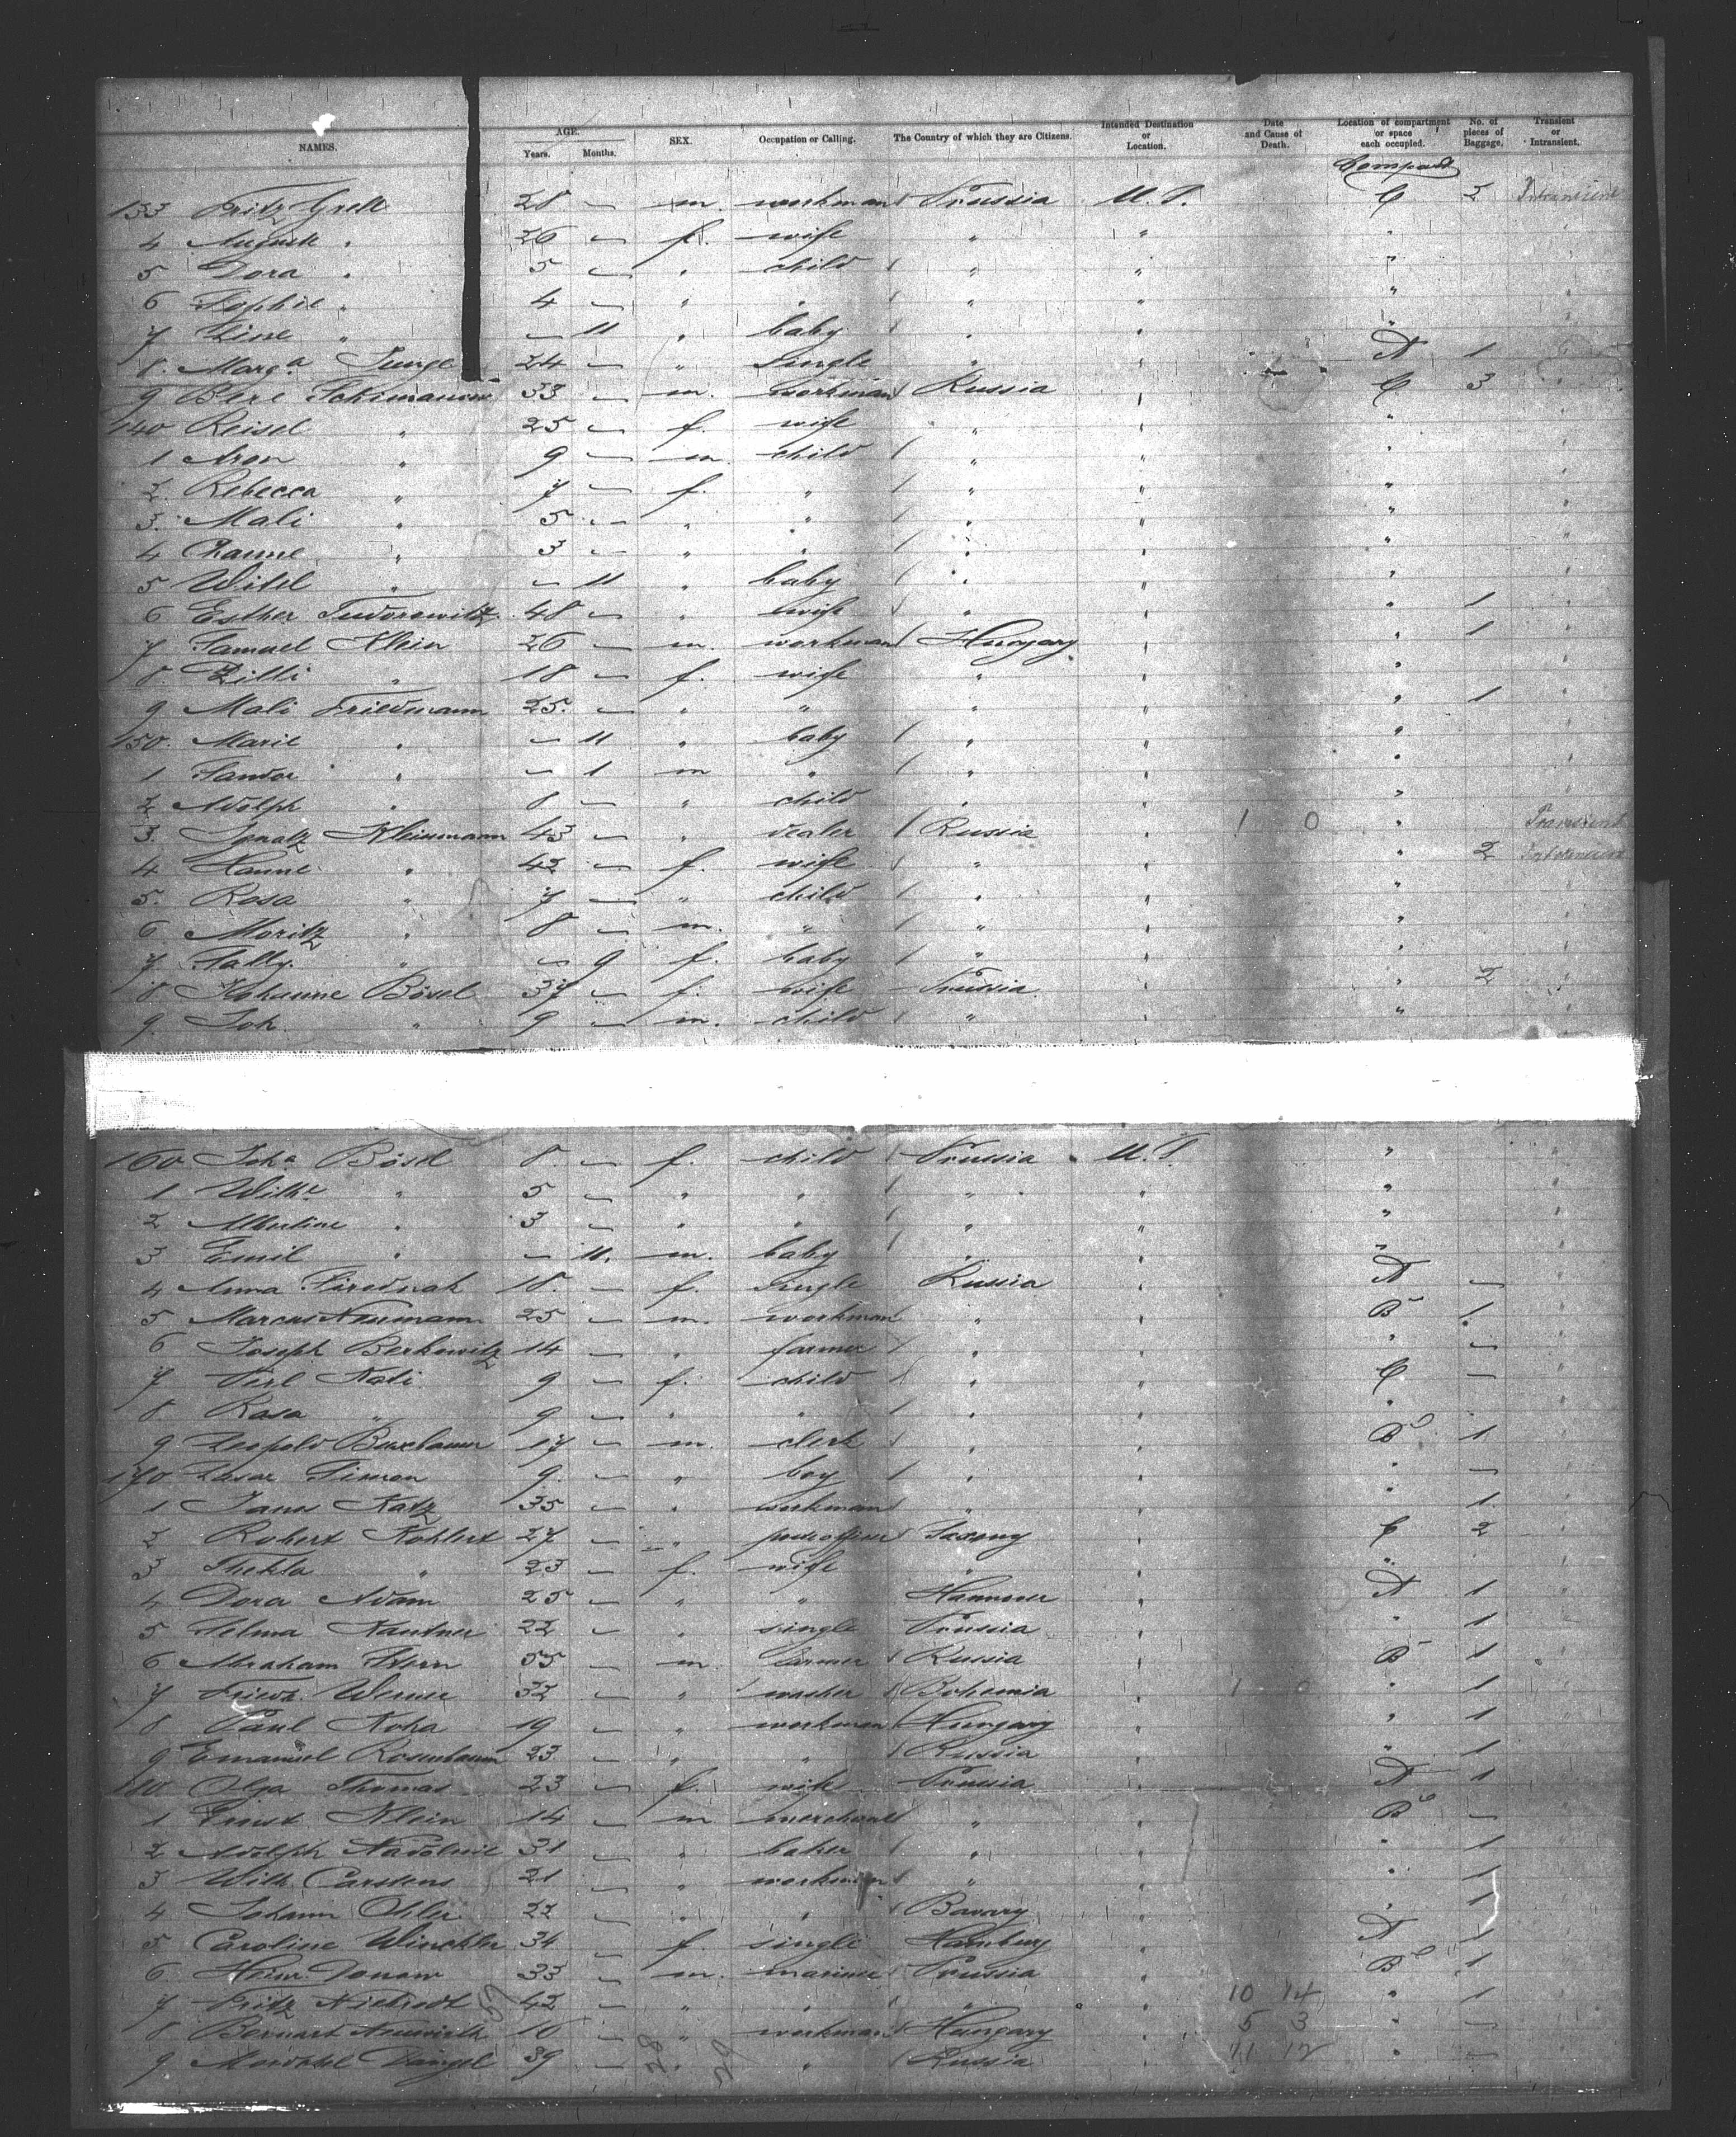 NAMES. AGE. Years. Months. SEX. Occupation or Calling. The Country of which they are Citizens. Intended Destination or Location. Date and Cause of Death. Location of compartment or space each occupied. No. of pieces of Baggage. Transient or Intransient.
133 Fritz Grell 28 — m. workman Prussia U.S. C 2 Intransient
4 Auguste " 26 — f. wife " " "
5 Dora " 5 — " child " " "
6 Sophie " 4 — " " " " "
7 Line " — 11 " baby " " "
8 Marg.a Junge 24 — " Single " " A 1
9 Bere 33 — m. workman Russia " C 3
140 Reisel " 25 — f. wife " " "
1 Aron " 9 — m. child " " "
2 Rebecca " 7 — f. " " " "
3 Mali " 5 — " " " " "
4 Channe " 3 — " " " " "
5 Witel " — 11 " baby " " "
6 Esther Tudorowitz 48 — " wife " " " 1
7 Samuel Klein 26 — m. workman Hungary " " 1
8 Zilli " 18 — f. wife " " "
9 Mali Friedmann 25 — " " " " " 1
150 Marie " — 11 " baby " " "
1 Sandor " — 1 m " " " "
2 Adolph " 8 — " child " " "
3 Ignatz Kleinmann 43 — " dealer Russia " 1 0 " Transient
4 Hanne " 42 — f. wife " " " 2 Intransient
5 Rosa " 7 — " child " " "
6 Moritz " 8 — m. " " " "
7 Sally " — 9 f. baby " " "
8 Johanne Bösel 37 — f. wife Prussia " " 2
9 Joh. " 9 — m. child " " "
160 Joh.a Bösel 8 — f. child Prussia U.S. "
1 Wilh.e " 5 — " " " " "
2 Albertine " 3 — " " " " "
3 Emil " — 11 m. baby " " "
4 Anna 18 — f. Single Russia " A —
5 Marcus Neumann 25 — m. workman " " B 1
6 Joseph Berkowitz 14 — " farmer " " " —
7 Perl Kati 9 — f. child " " C —
8 Rosa " 9 — " " " " "
9 Leopold Buxbaum 17 — m. clerk " " B 1
170 Lasar Simon 9 — " boy " " " —
1 Katz 35 — " workman " " " 1
2 Robert Kohlert 27 — " Saxony " C 2
3 Thekla " 23 — f. wife " " "
4 Dora Adam 25 — " " Hannover " A 1
5 Selma Kantner 22 — " single Prussia " " 1
6 Abraham Stern 55 — m. farmer Russia " B 1
7 Friedr. Werner 32 — " washer Bohemia " 1 0 " 1
8 Paul Koha 19 — " workman Hungary " " 1
9 Emanuel Rosenbaum 23 — " " Russia " " 1
180 Olga Thomas 23 — f. wife Prussia " A 1
1 Ernst Klein 14 — m merchant " " B —
2 Adolph 31 — " baker " " " 1
3 Wilh. Carstens 21 — " workman " " " 1
4 Johann Ohler 22 — " " Bavary " " 1
5 Caroline Winckler 34 — f. single Hamburg " A 1
6 Heinr. Donow 33 — m. mariner Prussia " B 1
7 Fritz 42 — " " " " 10 14 " 1
8 Bernart Neuwirth 16 — " workman Hungary " 5 3 " —
9 39 — " " Russia " 11 12 " —